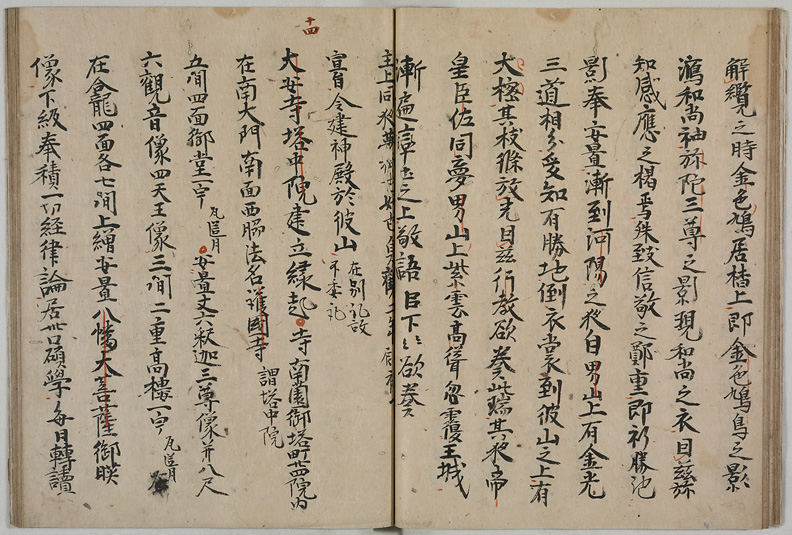 解纜之時金色鳩居檣上即金色鳩鳥之影
瀉和尚袖弥陀三尊之影現和尚之衣因茲弥
知感應之揭焉殊致信敬之鄭重即祈勝地
影奉安置漸到河陽之夜白男山上有金光
三道相分受知有勝地倒衣裳到彼山之上有
大樒其枝條放光因茲行教欲奏此瑞其夜帝
皇臣佐同夢男山上紫雲高聳忽覆王城
漸遍之上敬語臣下々欲奏
主上同夜
宣旨令建神殿於彼山 在別記故不委記
十四
大安寺塔中院建立縁起 寺南薗御塔町院内
在南大門南面西脇法名護國寺 謂塔中院
五間四面御堂一宇 安置丈六釈迦三尊像并八尺
六觀音像四天王像三間二重高樓一宇
在龕四面各七間上繒安置八幡大菩薩御映
像下級奉積一切経律論居卅口碩學毎日轉讀